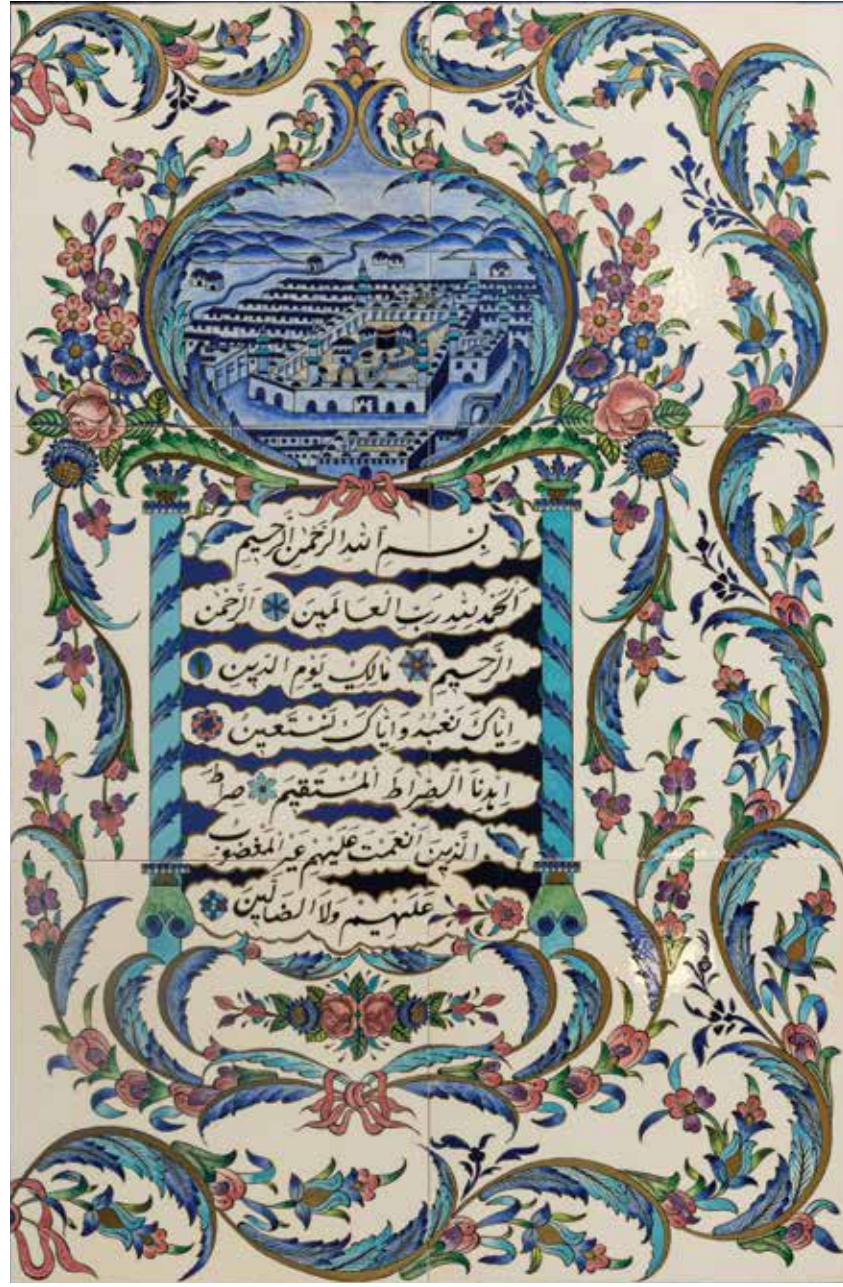 بِسْمِ اللهِ الرَّحْمٰنِ الرَّحِيمِ
اَلْحَمْدُ لِلّٰهِ رَبِّ الْعَالَمِينَ اَلرَّحْمٰنِ
الرَّحِيمِ مَالِكِ يَوْمِ الدِّينِ
اِيَّاكَ نَعْبُدُ وَاِيَّاكَ نَسْتَعِينُ
اِهْدِنَا الصِّرَاطَ الْمُسْتَقِيمَ صِرَاطَ
الَّذِينَ اَنْعَمْتَ عَلَيْهِمْ غَيْرِ الْمَغْضُوبِ
عَلَيْهِمْ وَلَا الضَّالِّينَ